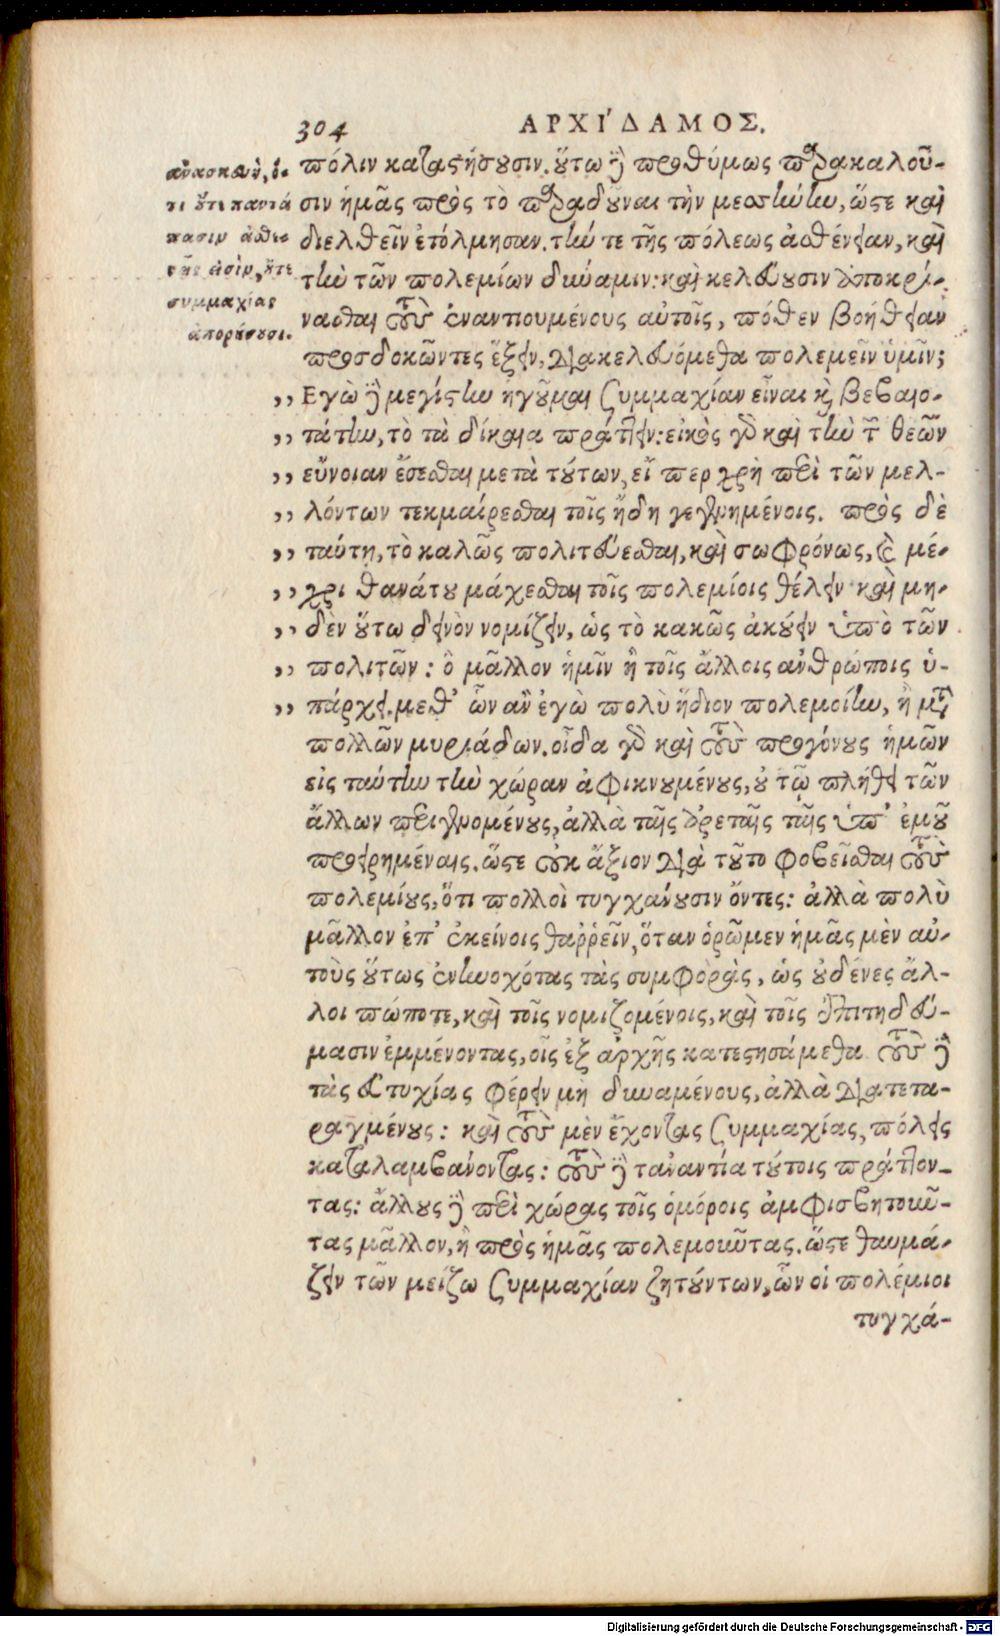 304 ΑΡΧΙΔΑΜΟΣ.
ἀνασκευὴ, ὅ-
τι οὔτε παντά
πασιν ἀσθε
νεῖς εἰσὶν, οὔτε
συμμαχίας
ἀπορήσουσι.
πόλιν καταστήσουσιν. οὕτω δὲ προθύμως παρακαλοῦ-
σιν ἡμᾶς πρὸς τὸ παραδοῦναι τὴν μεσσήνην, ὥστε καὶ
διελθεῖν ἐτόλμησαν. τήν τε τῆς πόλεως ἀσθένειαν, καὶ
τὴν τῶν πολεμίων δύναμιν: καὶ κελεύουσιν ἀποκρί-
νασθαι τοὺς ἐναντιουμένους αὐτοῖς, πόθεν βοήθειαν
προσδοκῶντες ἥξειν, διακελευόμεθα πολεμεῖν ὑμῖν;
,, Εγὼ δὲ μεγίστην ἡγοῦμαι συμμαχίαν εἶναι καὶ βεβαιο-
,, τάτην, τὸ τὰ δίκαια πράττειν: εἰκὸς γὰρ καὶ τὴν τῶν θεῶν
,, εὔνοιαν ἔσεσθαι μετὰ τούτων, εἴ περ χρὴ περὶ τῶν μελ-
,, λόντων τεκμαίρεσθαι τοῖς ἤδη γεγενημένοις. πρὸς δὲ
,, ταύτῃ, τὸ καλῶς πολιτεύεσθαι, καὶ σωφρόνως, καὶ μέ-
,, χρι θανάτου μάχεσθαι τοῖς πολεμίοις θέλειν· καὶ μη-
,, δὲν οὕτω δεινὸν νομίζειν, ὡς τὸ κακῶς ἀκούειν ὑπὸ τῶν
,, πολιτῶν: ὃ μᾶλλον ἡμῖν ἢ τοῖς ἄλλοις ἀνθρώποις ὑ-
,, πάρχει. μεθ' ὧν ἂν ἐγὼ πολὺ ἥδιον πολεμοίην, ἢ μετὰ
πολλῶν μυριάδων. οἶδα γὰρ καὶ τοὺς προγόνους ἡμῶν
εἰς ταύτην τὴν χώραν ἀφικνουμένους, οὐ τῷ πλήθει τῶν
ἄλλων περιγενομένους, ἀλλὰ ταῖς ἀρεταῖς ταῖς ὑπ' ἐμοῦ
προειρημέναις. ὥστε οὐκ ἄξιον διὰ τοῦτο φοβεῖσθαι τοὺς
πολεμίους, ὅτι πολλοὶ τυγχάνουσιν ὄντες: ἀλλὰ πολὺ
μᾶλλον ἐπ' ἐκείνοις θαῤῥεῖν, ὅταν ὁρῶμεν ἡμᾶς μὲν αὐ-
τοὺς οὕτως ἐνηνοχότας τὰς συμφορὰς, ὡς οὐδένες ἄλ-
λοι πώποτε, καὶ τοῖς νομιζομένοις, καὶ τοῖς ἐπιτηδεύ-
μασιν ἐμμένοντας, οἷς ἐξ ἀρχῆς κατεστησάμεθα. τοὺς δὲ
τὰς εὐτυχίας φέρειν μὴ δυναμένους, ἀλλὰ διατετα-
ραγμένους: καὶ τοὺς μὲν ἔχοντας συμμαχίας, πόλεις
καταλαμβάνοντας: τοὺς δὲ τἀναντία τούτοις πράττον-
τας: ἄλλους δὲ περὶ χώρας τοῖς ὁμόροις ἀμφισβητοῦν-
τας μᾶλλον, ἢ πρὸς ἡμᾶς πολεμοῦντας. ὥστε θαυμά-
ζειν τῶν μείζω συμμαχίαν ζητούντων, ὧν οἱ πολέμιοι
τυγχά-
Digitalisierung gefördert durch die Deutsche Forschungsgemeinschaft - DFG